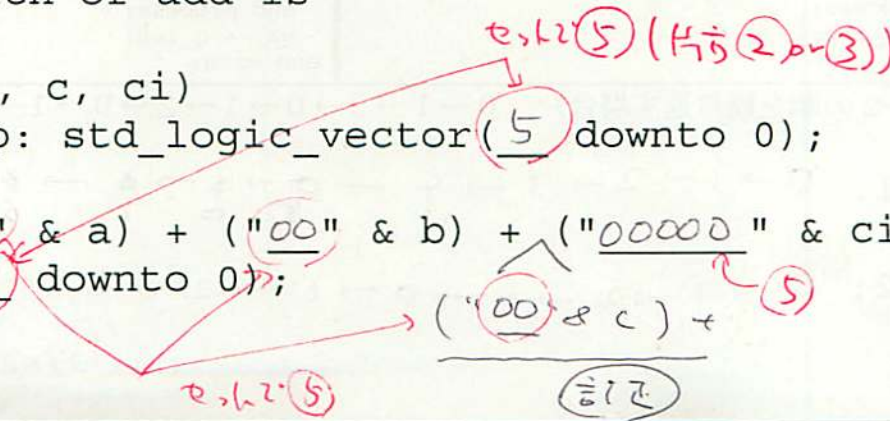 セットで⑤(片方②or③)
, c, ci)
: std_logic_vector(5 downto 0);
" & a) + ("00" & b) + ("00000" & ci
downto 0);
⑤
("00" & c) +
セットで⑤
訂正